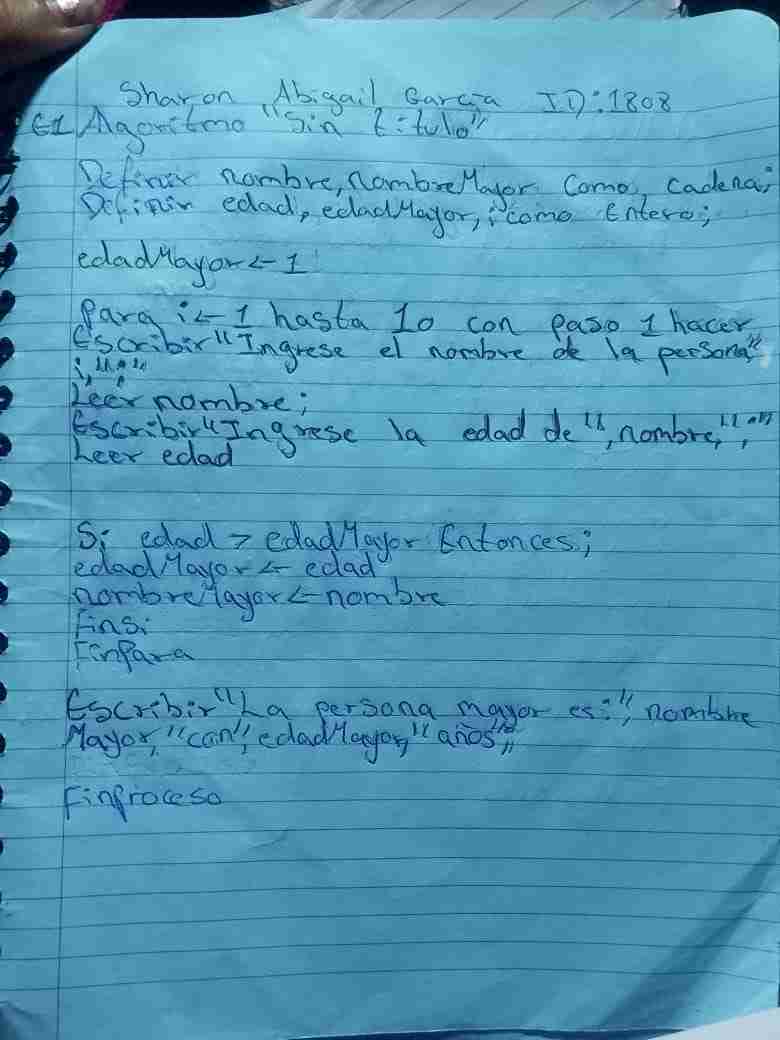 Sharon Abigail García ID:1808
E1 Algoritmo "Sin titulo"
Definir nombre, nombreMayor Como cadena;
Definir edad, edadMayor, i como Entero;
edadMayor ← 1
Para i ← 1 hasta 10 con paso 1 hacer
Escribir "Ingrese el nombre de la persona"
i, ":",
Leer nombre;
Escribir "Ingrese la edad de", nombre, ":",
Leer edad
Si edad > edadMayor Entonces;
edadMayor ← edad
nombreMayor ← nombre
Finsi
FinPara
Escribir "La persona mayor es:", nombre
Mayor, "con", edadMayor, "años";
Finproceso